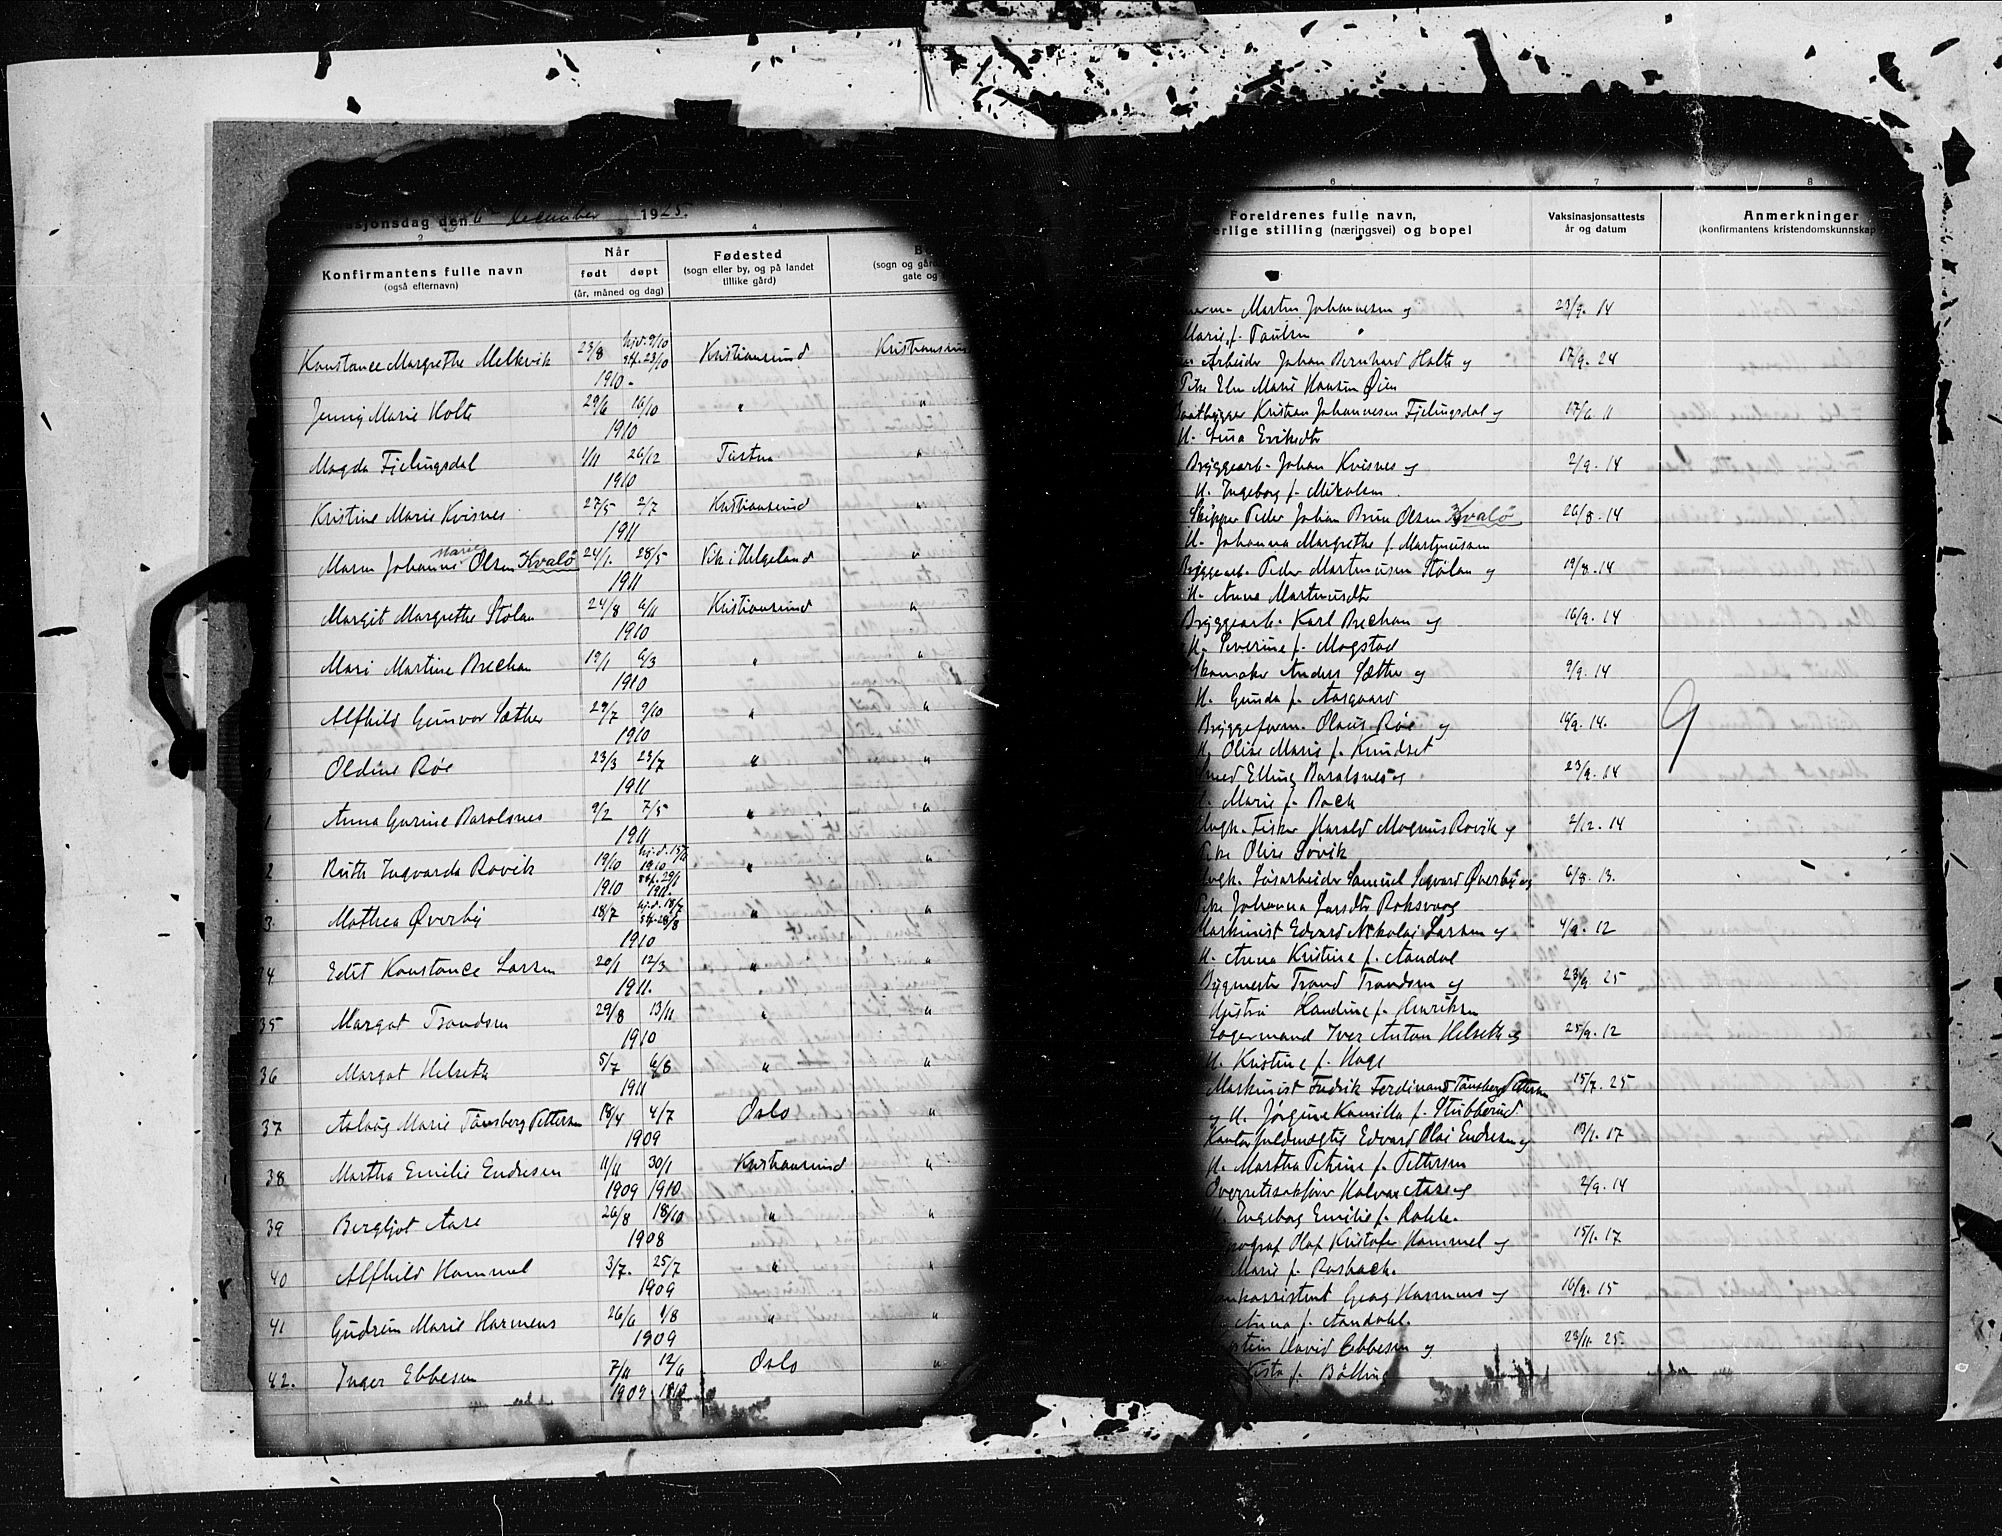 sjonsdag den 6 december 1925.
2
3
4
Konfirmantens fulle navn
(også efternavn)
Når
født døpt
(år, måned og dag)
Fødested
(sogn eller by, og på landet
tillike gård)
(sogn og går
gate og
Konstance Margrethe Melkvik 23/8 hj.d. 9/10 Kristiansund Kristiansun
stf. 23/10
1910
Jenny Marie Holte 29/6 16/10 " "
1910
Magda Fjelingsdal 1/11 26/12 Tustna "
1910
Kristine Marie Kvisnes 27/5 2/7 Kristiansund "
1911
Maren Johanne Marie Olsen Kvalö 24/1 28/5 Vik i Helgeland "
1911
Margit Margrethe Stolan 24/8 6/11 Kristiansund "
1910
Mari Martine Brechan 19/1 6/3 " "
1910
Alfhild Gunvor Sæther 29/7 9/10 " "
1910
Oldine Röe 23/3 23/7 " "
1911
Anna Gurine Baralsnes 9/2 7/5 " "
1911
2 Ruth Ingvarda Rovik 19/10 hj.d. " "
1910 1910 stf. 29/1 1911
3. Mathea Øverby 18/7 hj.d. 18/7 " "
stf. 28/8
1910
34 Edit Konstance Larsen 20/1 12/3 " "
1911.
35 Margot Trondsen 29/8 13/11 " "
1910
36 Margot Helseth 5/7 6/8 " "
1911
37 Aslaug Marie Tönsberg Pettersen 18/4 4/7 Oslo "
1909
38 Martha Emilie Endresen 11/11 30/1 Kristiansund "
1909 1910
39 Bergljot Aase 26/8 18/10 " "
1908
40 Alfhild Hammel 3/7. 25/7 " "
1909
41 Gudrun Marie Harmens 26/6 1/8 " "
1909
42. Inger Ebbesen 7/11 12/6 Oslo "
1909 1910
6
7
8
Foreldrenes fulle navn,
erlige stilling (næringsvei) og bopel
Vaksinasjonsattests
år og datum
Anmerkninger
(konfirmantens kristendomskunnskap
Martin Johannesen og 23/9. 14
Marie f. Paulsen
Arbeider Johan Bernhard Holte og 17/9. 24
Pike Elen Marie Hansen Øien
Baatbygger Kristian Johannesen Fjelingsdal og 17/6. 11
H. Lina Eriksdtr
Bryggearb. Johan Kvisnes og 2/9. 14
H. Ingeborg f. Mikalsen
Skipper Peder Johan Brun Olsen Kvalö 26/8. 14
H. Johanna Margrethe f. Martinussen
Bryggearb. Peder Martinussen Stolan og 19/8. 14
H. Anna Martinusdtr
Bryggearb. Karl Brechan og 16/9. 14
H. Severine f. Mogstad
Skomaker Anders Sæther og 9/9. 14
H. Gunda f. Aasgaard
Bryggeform. Olaus Röe og 16/9. 14.
H. Olise Marie f. Knudset
Smed Elling Baralsnes og 23/9. 14
H. Marie f. Bach
Ungk. Fisker Harald Magnus Rovik og 2/12. 14
Pike Olise Sövik
Ungk. Löisarbeider Samuel Sigvard Øverby og 6/8. 13.
Pike Johanna Larsdtr Roksvaag
Maskinist Edvard Nikolai Larsen og 4/9. 12
H. Anna Kristine f. Aandal
Bygmester Trond Trondsen og 23/9. 25
Hustru Handine f. Henriksen
Lagermand Iver Anton Helseth og 25/9. 12
H. Kristine f. Hage
Maskinist Fredrik Ferdinand Tönsberg Pettersen 15/7. 25
og H. Jörgine Kamilla f. Stubberud
Kontorfuldmægtig Edvard Olai Endresen og 13/1. 17
H. Martha Petrine f. Pettersen
Overretssakförer Halvar Aase og 2/9. 14
H. Ingeborg Emilie f. Dahle.
pograf Olaf Kristofer Hammel og 15/1. 17
Marie f. Rosbach.
assistent Georg Harmens og 16/9. 15
Anna f. Aandahl.
David Ebbesen og 23/11. 25.
f. Bölling